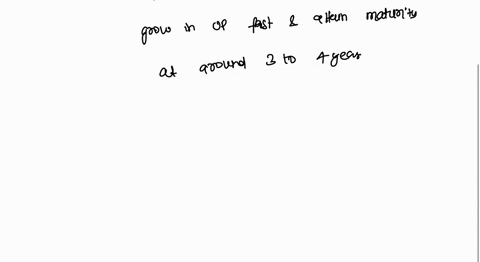 grow in up fast & attain maturity
at around 3 to 4 year